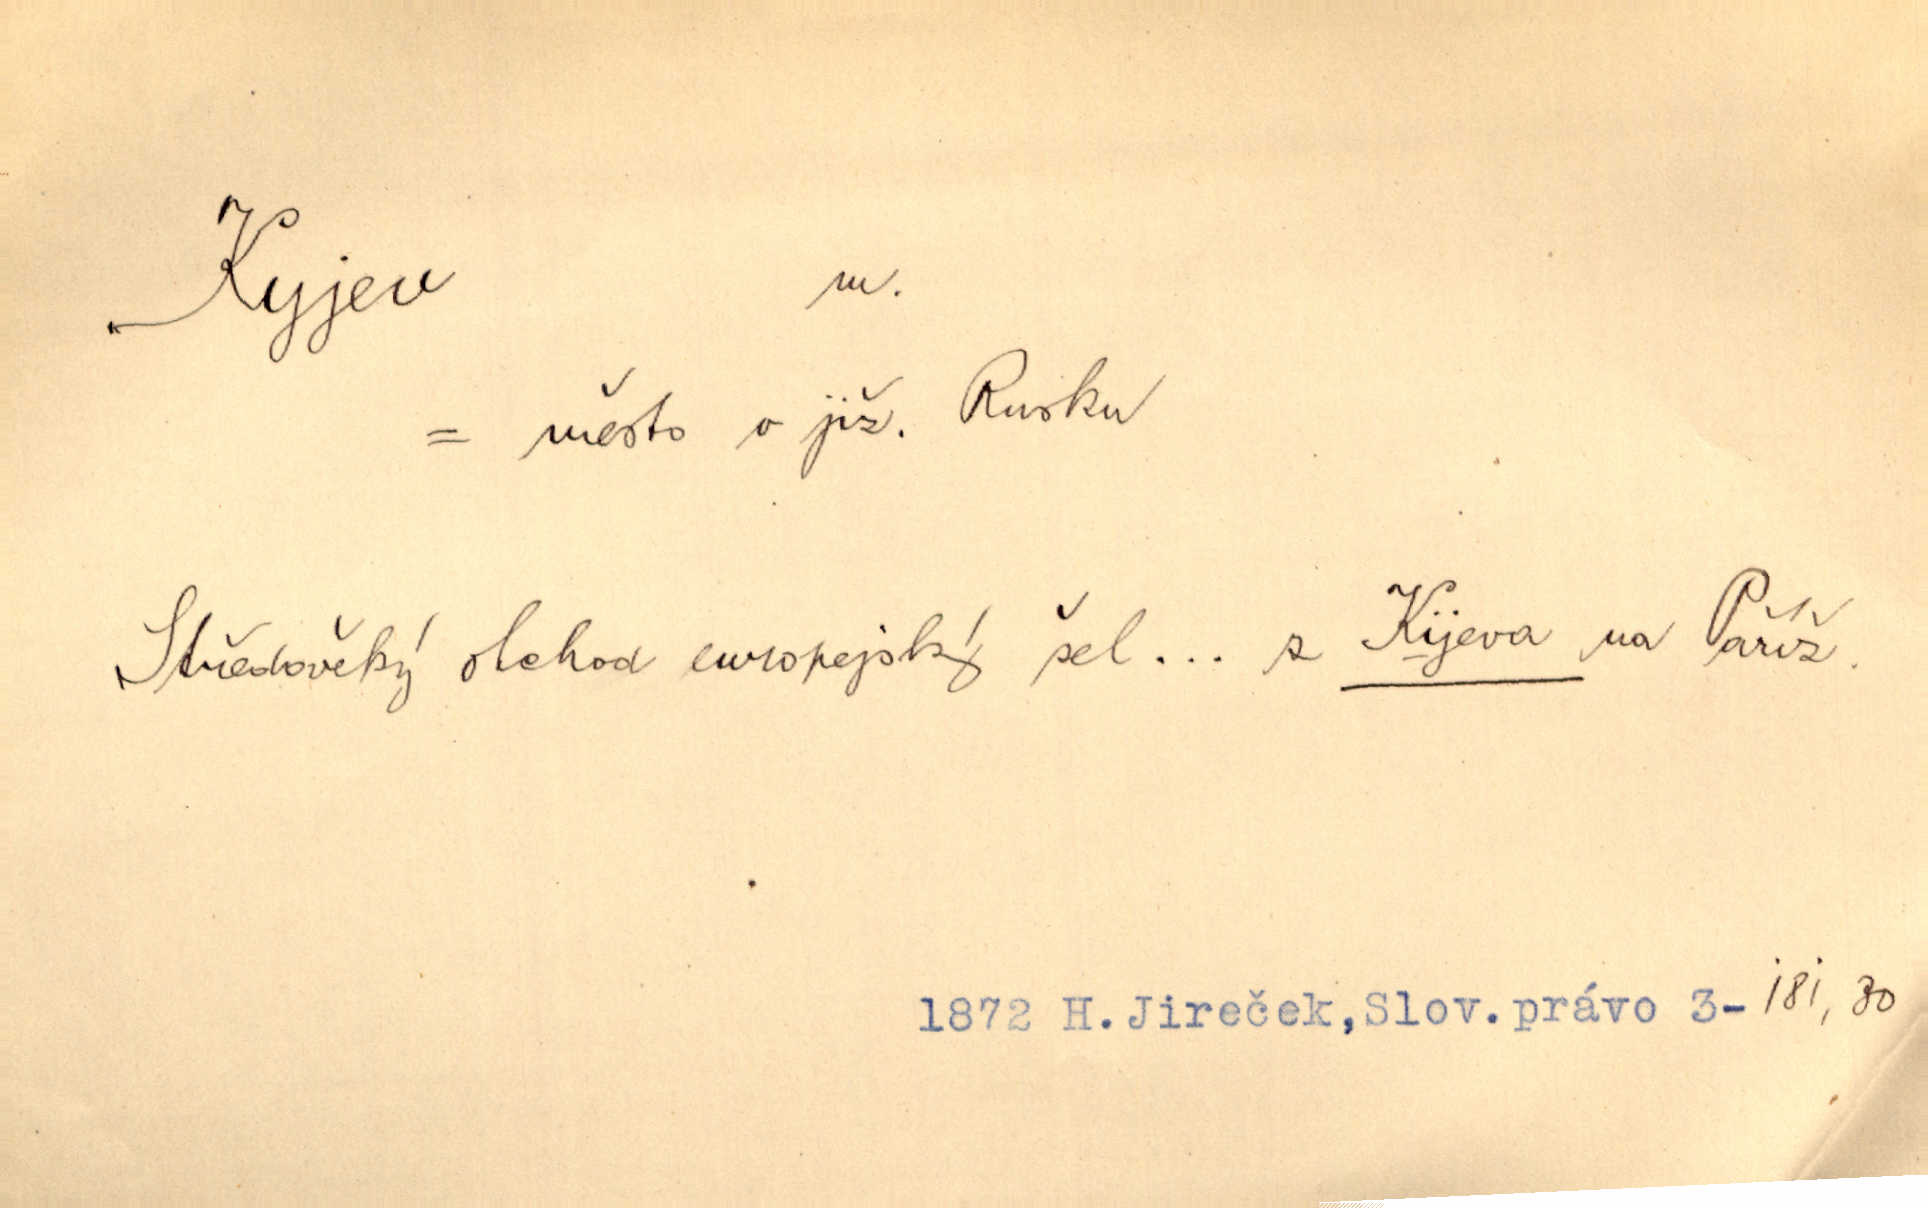 Kyjev m.
= město v již. Rusku
Středověký obchod europejský šel ... z Kijeva na Paříž.
1872 H. Jireček, Slov. právo 3- 181, 30